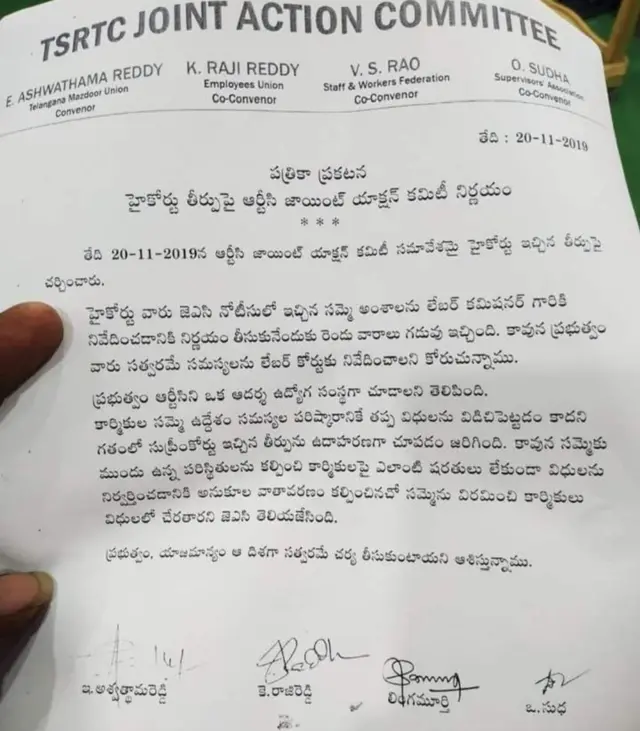 TSRTC JOINT ACTION COMMITTEE
E. ASHWATHAMA REDDY
Telangana Mazdoor Union
Convenor
K. RAJI REDDY
Employees Union
Co-Convenor
V. S. RAO
Staff & Workers Federation
Co-Convenor
O. SUDHA
Supervisors' Association
Co-Convenor
తేది : 20-11-2019
పత్రికా ప్రకటన
హైకోర్టు తీర్పుపై ఆర్టీసి జాయింట్ యాక్షన్ కమిటీ నిర్ణయం
* * *
తేది 20-11-2019న ఆర్టీసి జాయింట్ యాక్షన్ కమిటీ సమావేశమై హైకోర్టు ఇచ్చిన తీర్పుపై
చర్చించారు.
హైకోర్టు వారు జెఎసి నోటీసులో ఇచ్చిన సమ్మె అంశాలను లేబర్ కమిషనర్ గారికి
నివేదించడానికి నిర్ణయం తీసుకునేందుకు రెండు వారాలు గడువు ఇచ్చింది. కావున ప్రభుత్వం
వారు సత్వరమే సమస్యలను లేబర్ కోర్టుకు నివేదించాలని కోరుచున్నాము.
ప్రభుత్వం ఆర్టీసిని ఒక ఆదర్శ ఉద్యోగ సంస్థగా చూడాలని తెలిపింది.
కార్మికుల సమ్మె ఉద్దేశం సమస్యల పరిష్కారానికే తప్ప విధులను విడిచిపెట్టడం కాదని
గతంలో సుప్రీంకోర్టు ఇచ్చిన తీర్పును ఉదాహరణగా చూపడం జరిగింది. కావున సమ్మెకు
ముందు ఉన్న పరిస్థితులను కల్పించి కార్మికులపై ఎలాంటి షరతులు లేకుండా విధులను
నిర్వర్తించడానికి అనుకూల వాతావరణం కల్పించినచో సమ్మెను విరమించి కార్మికులు
విధులలో చేరతారని జెఎసి తెలియజేసింది.
ప్రభుత్వం, యాజమాన్యం ఆ దిశగా సత్వరమే చర్య తీసుకుంటాయని ఆశిస్తున్నాము.
ఇ.అశ్వత్థామరెడ్డి
కె.రాజిరెడ్డి
లింగమూర్తి
ఒ.సుధ